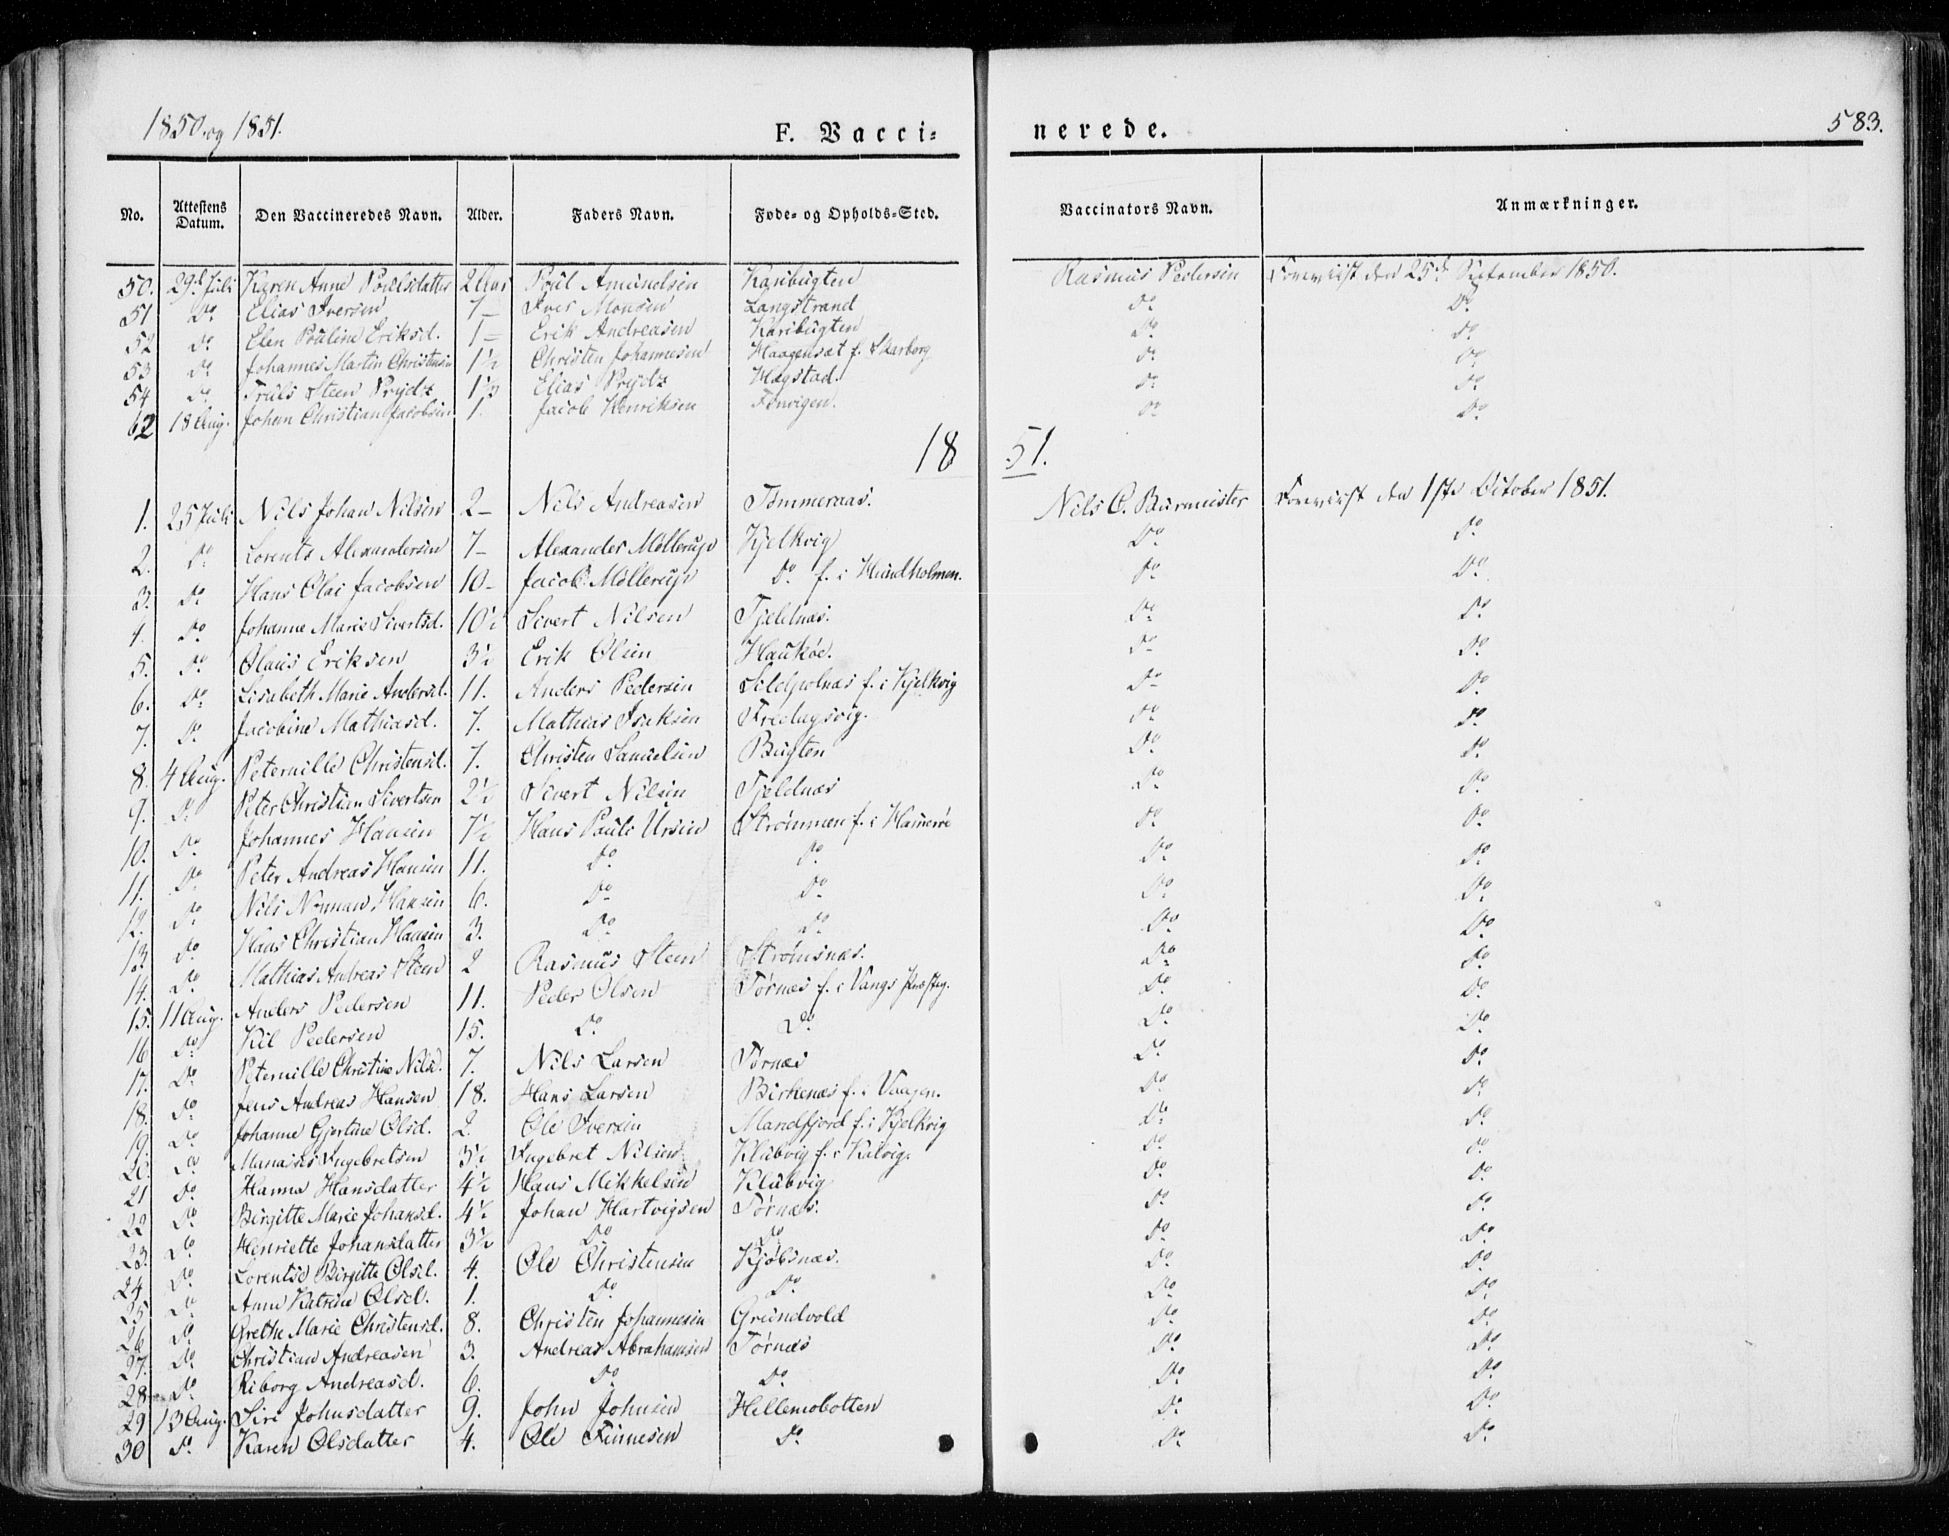 1850. og 1851.
F. Vacci=
nerede.
583.
No. Attestens Datum. Den Vaccineredes Navn. Alder. Faders Navn. Føde- og Opholds-Sted. Vaccinators Navn. Anmærkninger.
50. 29d Juli Karen Anne Poulsdatter 2 Aar Poul Amundsen Karibugten Rasmus Pedersen Foreviist den 25de September 1850.
51 Do Elias Iversen 7 – Iver Monsen Langstrand Do Do
52 Do Elen Pouline Eriksd. 1 – Erik Andreasen Karibugten Do Do
53 Do Johannes Martin Christensen 1½ Christen Johannesen Haagensæt f. Skarborg Do Do
54 Do Truls Steen Prydz 1½ Elias Prydz Hagstad. Do Do
62 18 Aug. Johan Christian Jacobsen 1. Jacob Henriksen Do Do
18 51.
1. 25 Juli Nils Johan Nilsen 2 – Nils Andreasen Tømmeraas. Nils C. Burmeister Foreviist den 1ste October 1851.
2. Do Lorents Alexandersen 7 – Alexander Møllerup Kjelkvig Do Do
3. Do Hans Olai Jacobsen 10 – Jacob Møllerup Do f. i Hundholmen. Do Do
4. Do Johanne Marie Sivertsd. 10½ Sivert Nilsen Tjeldnæs. Do Do
5. Do Olaus Eriksen 3½ Erik Olsen Haukøe. Do Do
6. Do Lisabeth Marie Andersd. 11. Anders Pedersen f. i Kjelkvig Do Do
7. Do Jacobine Mathiasd. 7. Mathias Isaksen Fredagsvig. Do Do
8. 4 Aug. Peternille Christensd. 7. Christen Samuelsen Bugten Do Do
9. Do Peter Christian Sivertsen 2½ Sivert Nilsen Tjeldnæs Do Do
10. Do Johannes Hansen 7½ Hans Pauli Ursin Strømmen f. i Hamerøe Do Do
11. Do Peter Andreas Hansen 11. Do Do Do Do
12. Do Nils Norman Hansen 6. Do Do Do Do
13. Do Hans Christian Hansen 3. Do Do Do Do
14. Do Mathias Andreas Steen 2 Rasmus Steen Strømsnæs. Do Do
15. 11 Aug. Anders Pedersen 11. Peder Olsen Tørnæs f. i Vangs Præsteg. Do Do
16 Do Kil Pedersen 15. Do Do Do Do
17. Do Peternille Christine Nilsd. 7. Nils Larsen Tørnæs Do Do
18. Do Jens Andreas Hansen 18. Hans Larsen Birkenæs f. i Vaagen. Do Do
19. Do Johanne Gjertine Olsd. 2. Ole Iversen Mandfjord f. i Kjelkvig Do Do
20. Do Manasses Ingebretsen 3½ Ingebret Nilsen Klubvig f. i Kalvig. Do Do
21 Do Hanna Hansdatter 4½ Hans Mikkelsen Klubvig Do Do
22 Do Birgitte Marie Johansd. 4½ Johan Hartvigsen Tørnæs. Do Do
23. Do Henriette Johansdatter 3½ Do Do Do Do
24 Do Lorentse Birgitte Olsd. 4. Ole Christensen Kjøbsnæs. Do Do
25 Do Anne Katrine Olsd. 1. Do Do Do Do
26 Do Grethe Marie Christensd. 8. Christen Johannesen Grundvold Do Do
27. Do Christian Andreasen 3. Andreas Abrahamsen Tørnæs Do Do
28 Do Riborg Andreasd. 6. Do Do Do Do
29 13 Aug. Siri Johnsdatter 9. John Johnsen Hellemobotten Do Do
30 Do Karen Olsdatter 4. Ole Finnesen Do Do Do